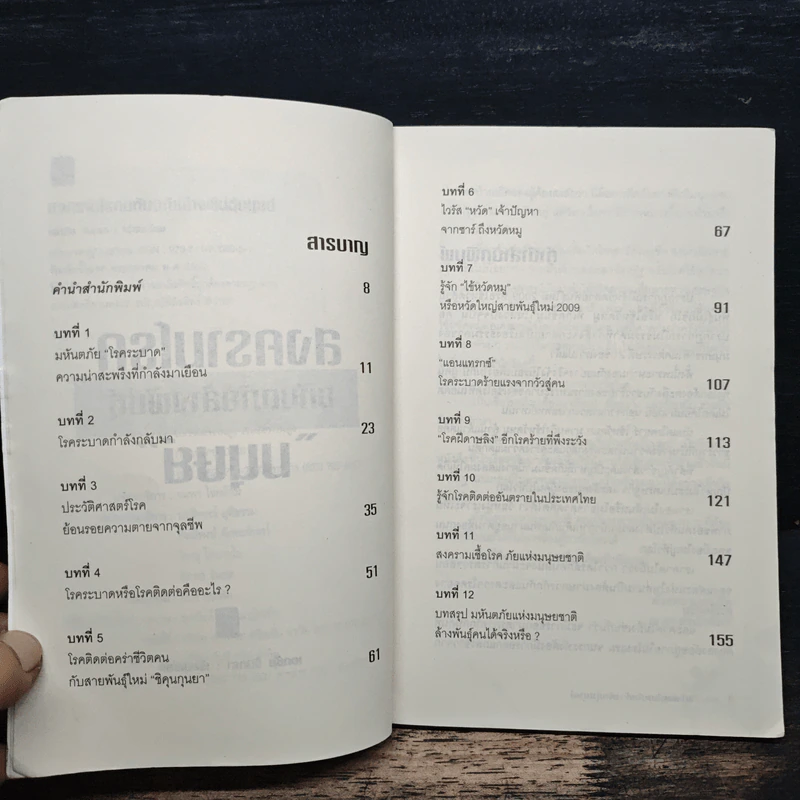 สารบาญ
คำนำสำนักพิมพ์ 8
บทที่ 1
มหันตภัย "โรคระบาด"
ความน่าสะพรึงที่กำลังมาเยือน 11
บทที่ 2
โรคระบาดกำลังกลับมา 23
บทที่ 3
ประวัติศาสตร์โรค
ย้อนรอยความตายจากจุลชีพ 35
บทที่ 4
โรคระบาดหรือโรคติดต่อคืออะไร ? 51
บทที่ 5
โรคติดต่อคร่าชีวิตคน
กับสายพันธุ์ใหม่ "ชิคุนกุนยา" 61
บทที่ 6
ไวรัส "หวัด" เจ้าปัญหา
จากซาร์ ถึงหวัดหมู 67
บทที่ 7
รู้จัก "ไข้หวัดหมู"
หรือหวัดใหญ่สายพันธุ์ใหม่ 2009 91
บทที่ 8
"แอนแทรกซ์"
โรคระบาดร้ายแรงจากวัวสู่คน 107
บทที่ 9
"โรคฝีดาษลิง" อีกโรคร้ายที่พึงระวัง 113
บทที่ 10
รู้จักโรคติดต่ออันตรายในประเทศไทย 121
บทที่ 11
สงครามเชื้อโรค ภัยแห่งมนุษยชาติ 147
บทที่ 12
บทสรุป มหันตภัยแห่งมนุษยชาติ
ล้างพันธุ์คนได้จริงหรือ ? 155